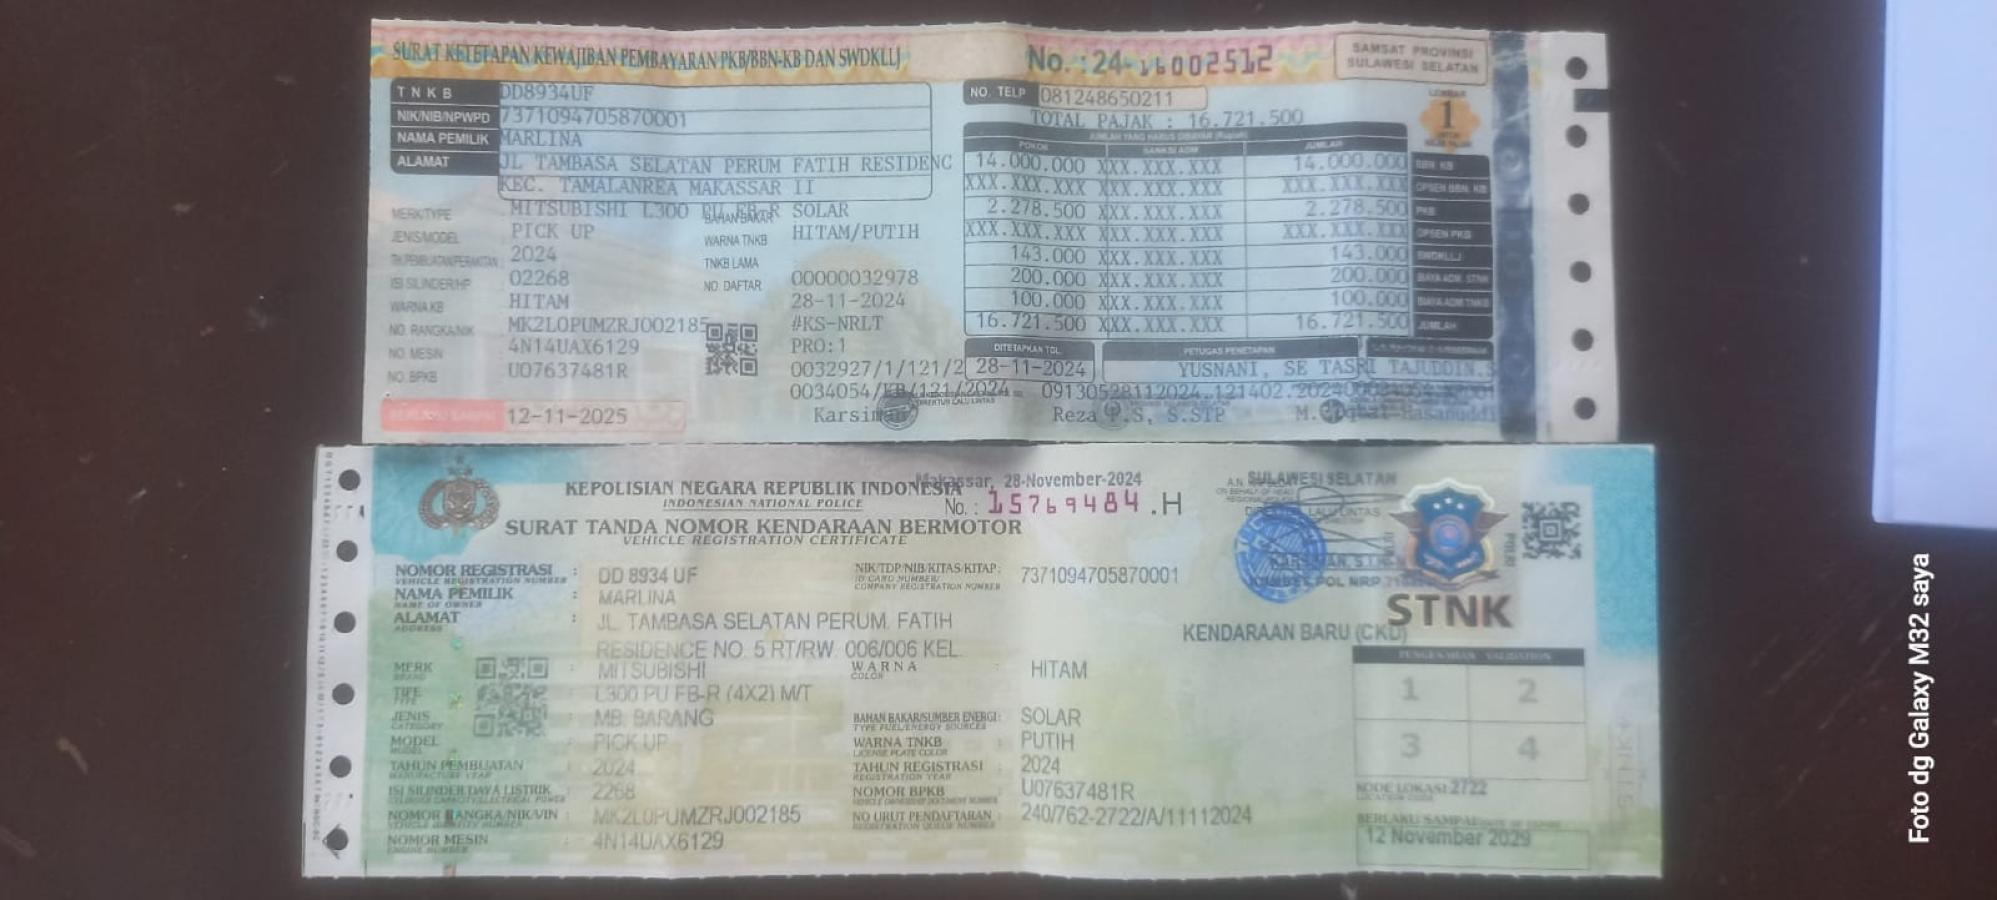 SURAT KETETAPAN KEWAJIBAN PEMBAYARAN PKB/BBN-KB DAN SWDKLLJ
No. : 24-16002512
SAMSAT PROVINSI
SULAWESI SELATAN
TNKB DD8934UF
NIK/NIB/NPWPD 7371094705870001
NAMA PEMILIK MARLINA
ALAMAT JL TAMBASA SELATAN PERUM FATIH RESIDENC
KEC. TAMALANREA MAKASSAR II
NO. TELP 081248650211
TOTAL PAJAK : 16.721.500
LEMBAR
1
JUMLAH YANG HARUS DIBAYAR (Rupiah)
POKOK SANKSI ADM JUMLAH
14.000.000 XXX.XXX.XXX 14.000.000 BBN KB
XXX.XXX.XXX XXX.XXX.XXX XXX.XXX.XXX OPSEN BBN. KB
2.278.500 XXX.XXX.XXX 2.278.500 PKB
XXX.XXX.XXX XXX.XXX.XXX XXX.XXX.XXX OPSEN PKB
143.000 XXX.XXX.XXX 143.000 SWDKLLJ
200.000 XXX.XXX.XXX 200.000 BIAYA ADM. STNK
100.000 XXX.XXX.XXX 100.000 BIAYA ADM TNKB
16.721.500 XXX.XXX.XXX 16.721.500 JUMLAH
MERK/TYPE MITSUBISHI L300 PU FB-R
BAHAN BAKAR SOLAR
JENIS/MODEL PICK UP
WARNA TNKB HITAM/PUTIH
TH.PEMBUATAN/PERAKITAN 2024
TNKB LAMA
ISI SILINDER/HP 02268
NO. DAFTAR 00000032978
WARNA KB HITAM
28-11-2024
NO. RANGKA/NIK MK2L0PUMZRJ002185
#KS-NRLT
NO. MESIN 4N14UAX6129
PRO:1
NO. BPKB U07637481R
0032927/1/121/2
0034054/KB/121/2024
12-11-2025
Karsiman
DITETAPKAN TGL. PETUGAS PENETAPAN
28-11-2024 YUSNANI, SE TASRI TAJUDDIN.S
Reza .S, S.STP
M. Iqbal Hasanuddi
KEPOLISIAN NEGARA REPUBLIK INDONESIA
INDONESIAN NATIONAL POLICE
Makassar, 28-November-2024
No. : 15769484 .H
SURAT TANDA NOMOR KENDARAAN BERMOTOR
VEHICLE REGISTRATION CERTIFICATE
SULAWESI SELATAN
STNK
KENDARAAN BARU (CKD)
NOMOR REGISTRASI : DD 8934 UF
VEHICLE REGISTRATION NUMBER
NIK/TDP/NIB/KITAS/KITAP : 7371094705870001
ID CARD NUMBER/
COMPANY REGISTRATION NUMBER
NAMA PEMILIK : MARLINA
NAME OF OWNER
ALAMAT : JL. TAMBASA SELATAN PERUM. FATIH
ADDRESS
RESIDENCE NO. 5 RT/RW. 006/006 KEL.
MERK : MITSUBISHI
BRAND
WARNA : HITAM
COLOR
TIPE : L300 PU FB-R (4X2) M/T
TYPE
JENIS : MB. BARANG
CATEGORY
BAHAN BAKAR/SUMBER ENERGI : SOLAR
TYPE FUEL/ENERGY SOURCES
MODEL : PICK UP
MODEL
WARNA TNKB : PUTIH
LICENSE PLATE COLOR
TAHUN PEMBUATAN : 2024
MANUFACTURE YEAR
TAHUN REGISTRASI : 2024
REGISTRATION YEAR
ISI SILINDER/DAYA LISTRIK : 2268
CYLINDER CAPACITY/ELECTRICAL POWER
NOMOR BPKB : U07637481R
NOMOR RANGKA/NIK/VIN : MK2L0PUMZRJ002185
NO URUT PENDAFTARAN : 240/762-2722/A/11112024
REGISTRATION QUEUE NUMBER
NOMOR MESIN : 4N14UAX6129
ENGINE NUMBER
PENGESAHAN VALIDATION
1 2
3 4
KODE LOKASI 2722
LOCATION CODE
BERLAKU SAMPAI
12 November 2029
Foto dg Galaxy M32 saya